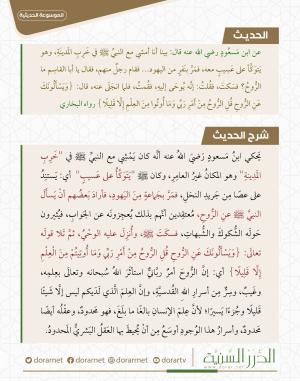 الموسوعة الحديثية
الحديث
عن ابن مسعود رضي الله عنه قال: بينا أنا أمشي مع النبي ﷺ في خرب المدينة، وهو
يتوكأ على عسيب معه، فمر بنفر من اليهود... فقام رجل منهم، فقال يا أبا القاسم ما
الروح؟ فسكت، فقلت: إنه يوحى إليه، فقمت، فلما انجلى عنه، قال: {وَيَسْأَلُونَكَ
عَنِ الرُّوحِ قُلِ الرُّوحُ مِنْ أَمْرِ رَبِّي وَمَا أُوتِيتُمْ مِنَ الْعِلْمِ إِلَّا قَلِيلًا} رواه البخاري
شرح الحديث
يحكي ابن مسعود رضي الله عنه أنه كان يمشي مع النبي ﷺ في "خرب
المدينة" وهو المكان غير العامر، وكان ﷺ "يتوكأ على عسيب" أي: يستند
على عصا من جريد النخل، فمر بجماعة من اليهود، فأراد بعضهم أن يسأل
النبي ﷺ عن الروح، معتقدين أنهم بذلك يعجزونه عن الجواب، فيثيرون
حوله الشكوك والشبهات، فسكت ﷺ، وأنزل عليه الوحي، ثم تلا قوله
تعالى: {وَيَسْأَلُونَكَ عَنِ الرُّوحِ قُلِ الرُّوحُ مِنْ أَمْرِ رَبِّي وَمَا أُوتِيتُمْ مِنَ الْعِلْمِ
إِلَّا قَلِيلًا} أي: إن الروح أمر رباني استأثر الله سبحانه وتعالى بعلمه،
وغيب، وسر من أسرار الله القدسية، وإن العلم الذي لديكم ليس إلا شيئا
قليلا وجزءا يسيرا؛ لأن علم الإنسان بالغا ما بلغ، فهو محدود، وعقله أيضا
محدود، وأسرار هذا الوجود أوسع من أن يحيط بها العقل البشري المحدود.
الدرر السنية
www.dorar.net
dorarnet dorarnet dorartv